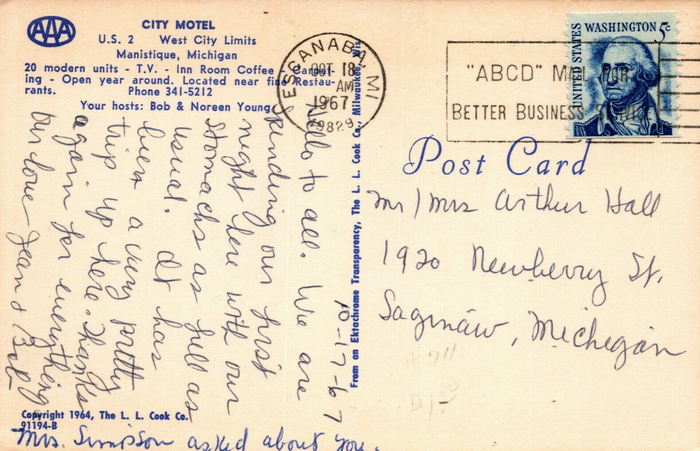 AAA
CITY MOTEL
U.S. 2 West City Limits
Manistique, Michigan
20 modern units - T.V. - Inn Room Coffee - Carpet-
ing - Open year around. Located near fine Restau-
rants. Phone 341-5212
Your hosts: Bob & Noreen Young
ESCANABA, MI
OCT 18
AM
1967
49829
"ABCD" MAIL FOR
BETTER BUSINESS SERVICE
UNITED STATES
WASHINGTON 5c
Post Card
From an Ektachrome Transparency, The L. L. Cook Co., Milwaukee, Wis.
10-17-67
Hello to all. We are
spending our first
night here with our
stomachs as full as
usual. It has
been a very pretty
trip up here. Thanks
again for everything
Our love Jean & Bob
Mrs. Simpson asked about you.
Mr/Mrs Arthur Hall
1920 Newberry St.
Saginaw, Michigan
Copyright 1964, The L. L. Cook Co.
91194-B